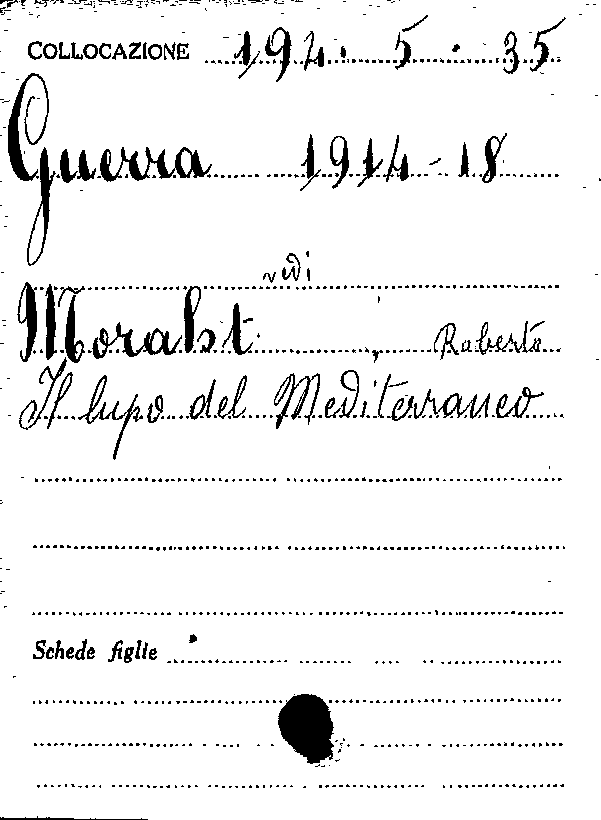 COLLOCAZIONE 194. 5. 35
Guerra 1914-18
vedi
Moraht, Roberto
Il lupo del Mediterraneo
Schede figlie